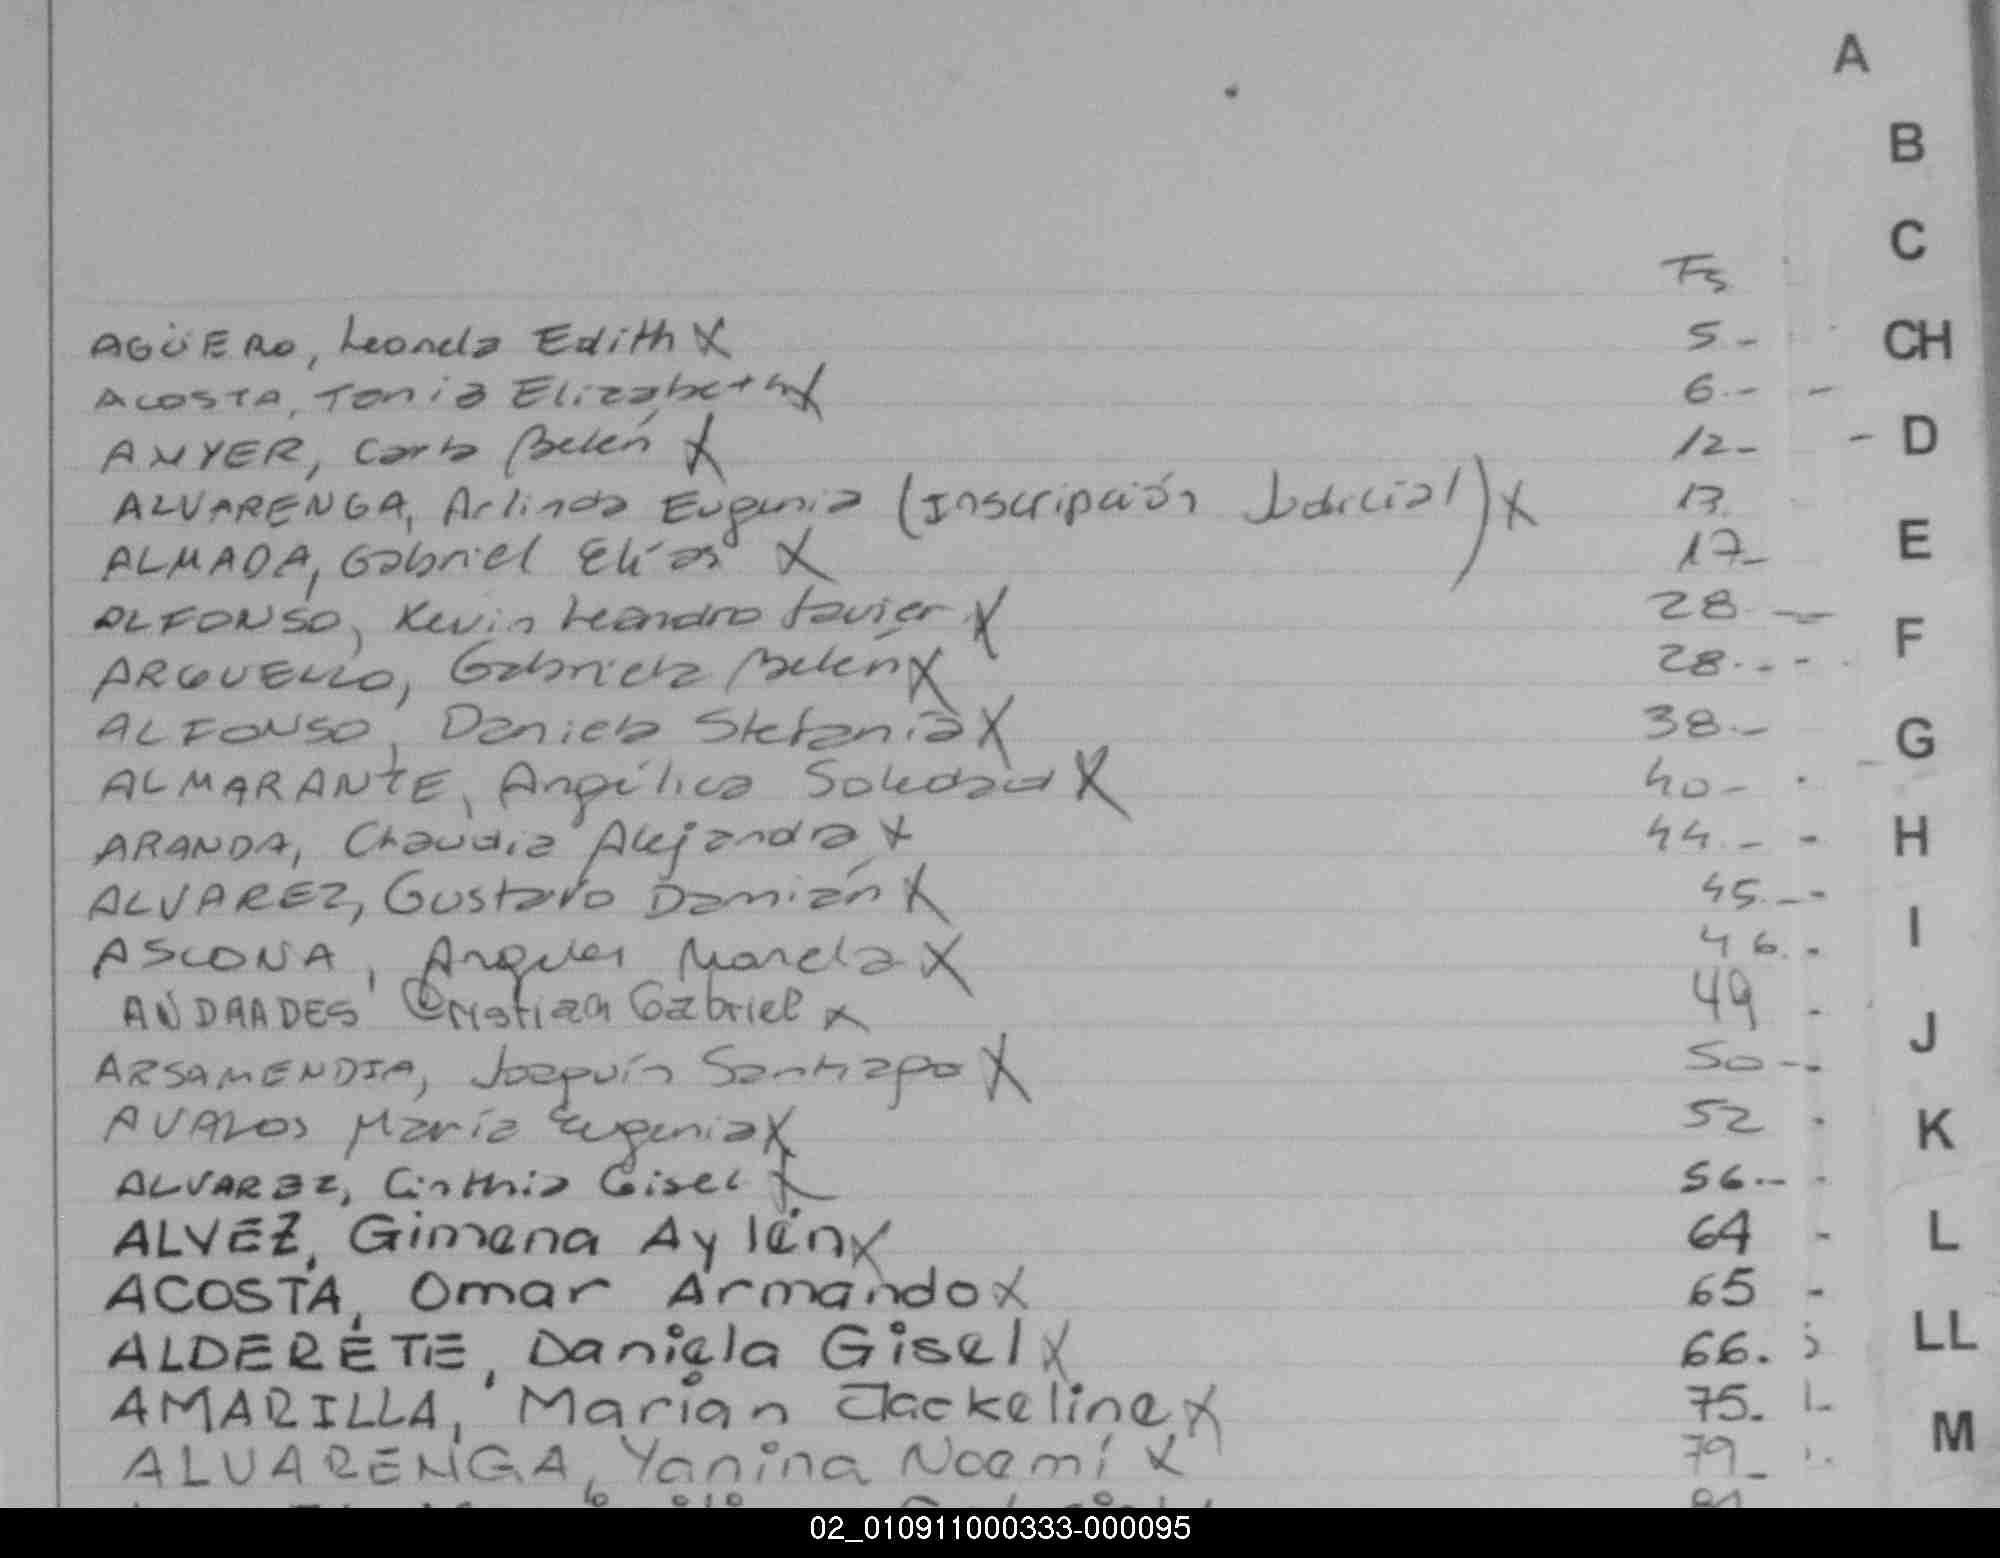 A
B
C
Fs
CH
AGÜERO, Leonela Edith X 5.-
ACOSTA, Tania Elizabeth X 6.-
D
ANYER, Carla Belén X 12-
ALVARENGA, Arlinda Eugenia (Inscripción Judicial) X 13.
E
ALMADA, Gabriel Elías X 17-
ALFONSO, Kevin Leandro Javier X 28
F
ARGUELLO, Gabriela Belén X 28.-
ALFONSO, Daniela Stefanía X 38.-
G
ALMARANTE, Angélica Soledad X 40-
ARANDA, Chaudia Alejandra X 44.-
H
ALVAREZ, Gustavo Damián X 45.-
I
ASCONA, Angeles Mariela X 46.
ANDRADES Cristian Gabriel X 49
J
ARSAMENDIA, Joaquín Santiago X 50-
AVALOS María Eugenia X 52
K
ALVAREZ, Cinthia Gisel X 56.-
ALVEZ, Gimena Aylén X 64
L
ACOSTA, Omar Armando X 65
ALDERETE, Daniela Gisel X 66.
LL
AMARILLA, Marian Jackeline X 75.
M
ALVARENGA, Yanina Noemí X 79-
02_010911000333-000095